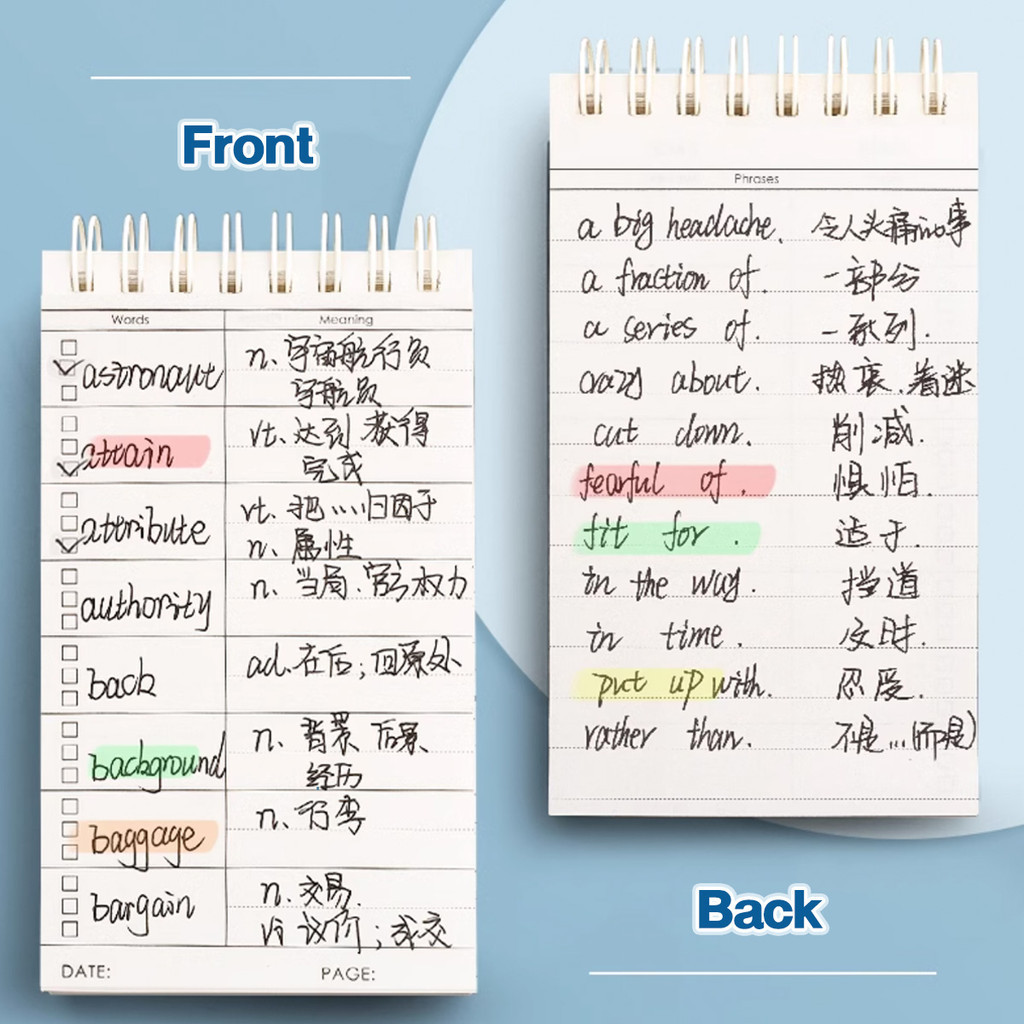 Front
Words Meaning
astronaut n. 宇宙航行员
宇航员
attain vt. 达到 获得
完成
attribute vt. 把……归因于
n. 属性
authority n. 当局. 官方权力
back ad. 在后; 回原处
background n. 背景 后景
经历
baggage n. 行李
bargain n. 交易.
vi 议价; 成交
DATE: PAGE:
Phrases
a big headache. 令人头痛的事
a fraction of. 一部分
a series of. 一系列.
crazy about. 热衷.着迷
cut down. 削减.
fearful of. 惧怕.
fit for. 适于.
in the way. 挡道
in time. 及时.
put up with. 忍受.
rather than. 不是...(而是)
Back